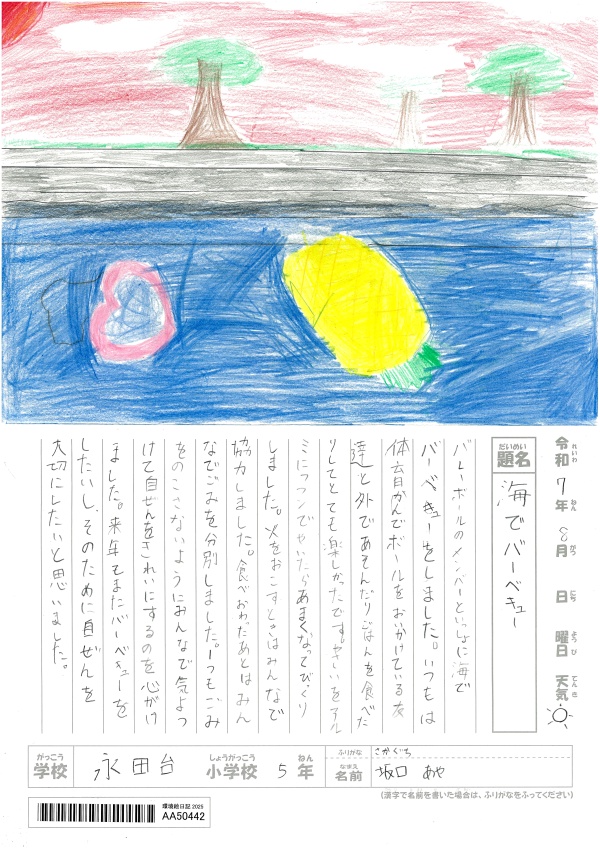 令和7年8月 日 曜日 天気
れいわ ねん がつ にち ようび てんき
だいめい
題名
海でバーベキュー
バレーボールのメンバーといっしょに海で
バーベキューをしました。いつもは
体育かんでボールをおいかけている友
達と外であそんだりごはんを食べた
りしてとても楽しかったです。やさいをアル
ミにつつんでやいたらあまくなってびっくり
しました。火をおこすときはみんなで
協力しました。食べおわったあとはみん
なでごみを分別しました。一つもごみ
をのこさないようにみんなで気よつ
けて自ぜんをきれいにするのを心がけ
ました。来年もまたバーベキューを
したいし、そのために自ぜんを
大切にしたいと思いました。
がっこう
学校
永田台
しょうがっこう ねん
小学校 5年
ふりがな
さかぐち
なまえ
名前
坂口 あや
(漢字で名前を書いた場合は、ふりがなをふってください)
環境絵日記 2025
AA50442